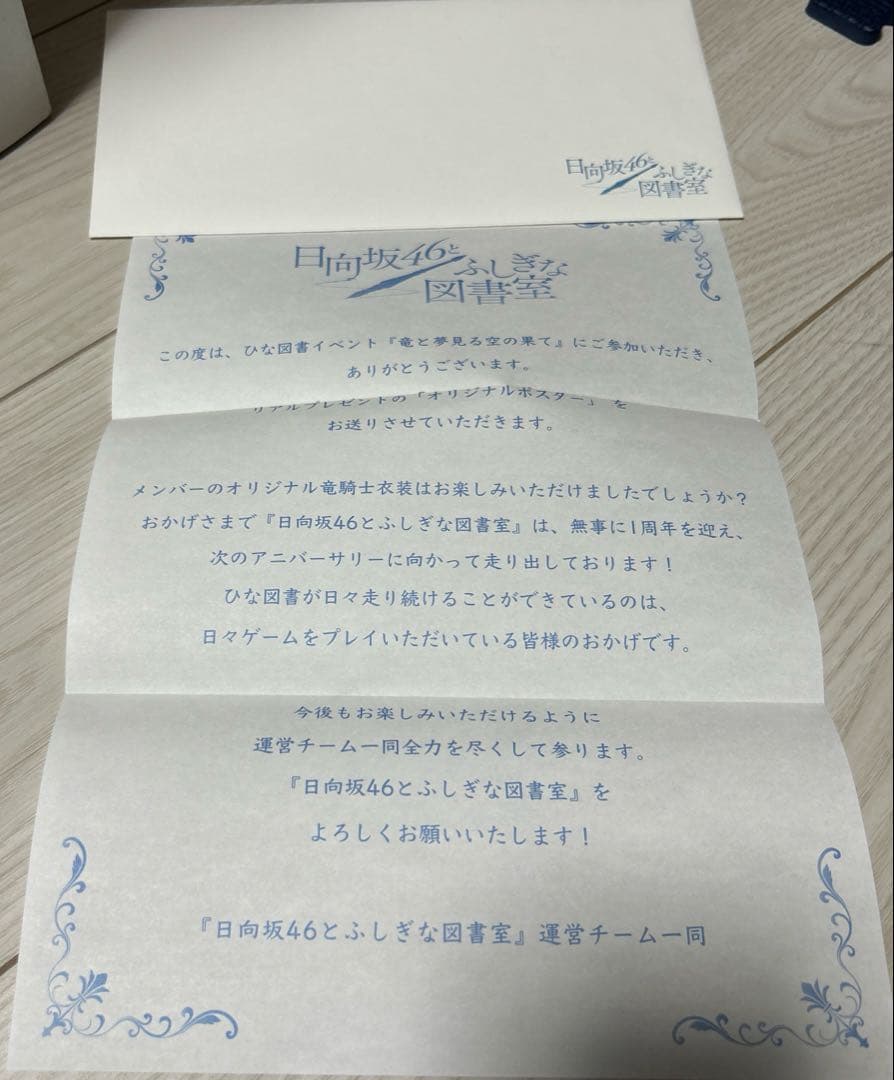 日向坂46と
ふしぎな
図書室
日向坂46と
ふしぎな
図書室
この度は、ひな図書イベント『竜と夢見る空の果て』にご参加いただき、
ありがとうございます。
リアルプレゼントの「オリジナルポスター」を
お送りさせていただきます。
メンバーのオリジナル竜騎士衣装はお楽しみいただけましたでしょうか？
おかげさまで『日向坂46とふしぎな図書室』は、無事に1周年を迎え、
次のアニバーサリーに向かって走り出しております！
ひな図書が日々走り続けることができているのは、
日々ゲームをプレイいただいている皆様のおかげです。
今後もお楽しみいただけるように
運営チーム一同全力を尽くして参ります。
『日向坂46とふしぎな図書室』を
よろしくお願いいたします！
『日向坂46とふしぎな図書室』運営チーム一同